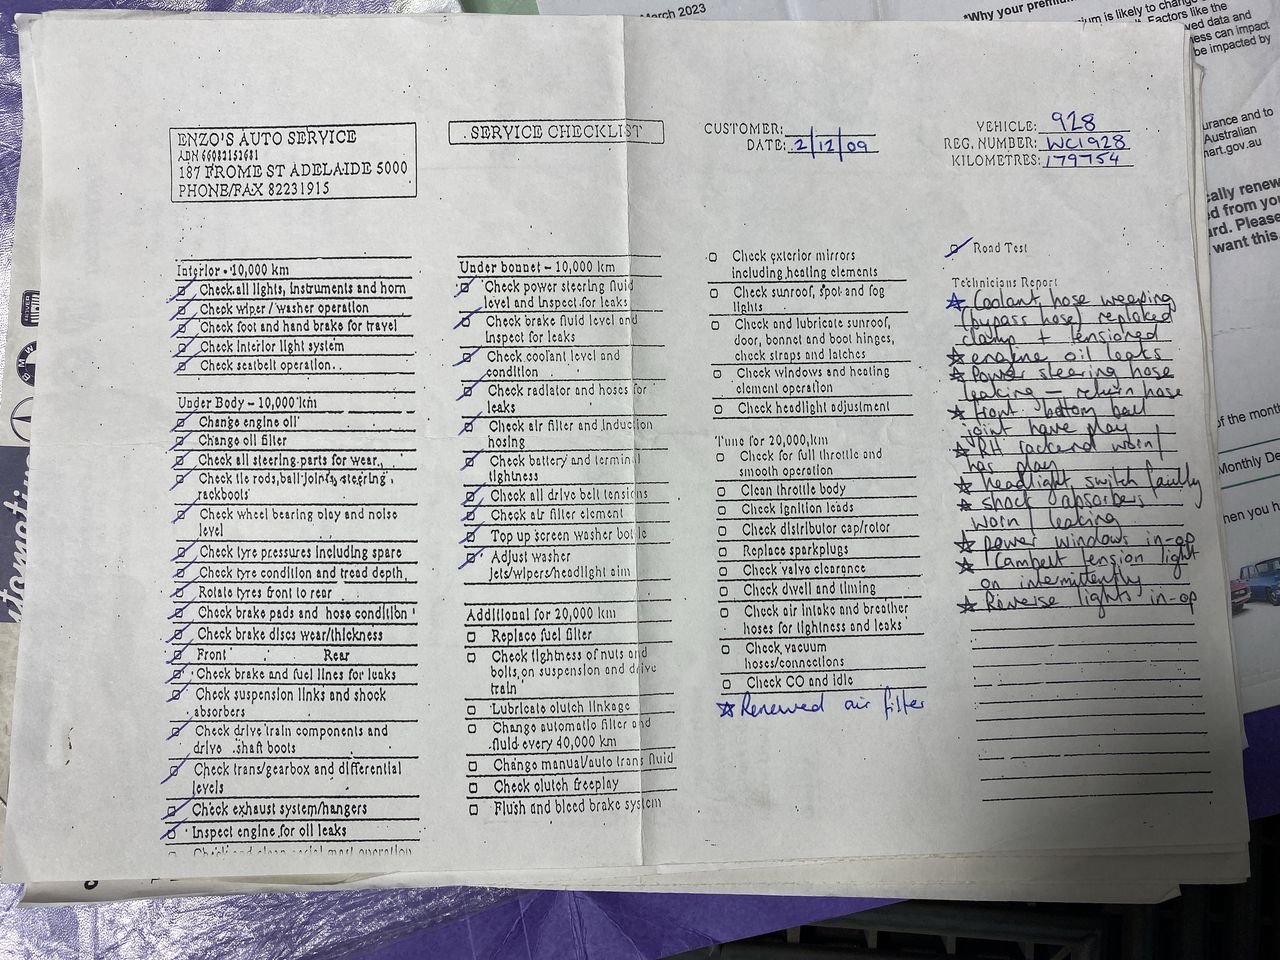 March 2023
*Why your premium
ium is likely to change
. Factors like the
ved data and
ness can impact
be impacted by
urance and to
Australian
nart.gov.au
cally renew
ed from you
ard. Please
want this.
of the month
Monthly De
hen you h
ENZO'S AUTO SERVICE
ABN 66082153681
187 FROME ST ADELAIDE 5000
PHONE/FAX 82231915
SERVICE CHECKLIST
CUSTOMER:
DATE: 2/12/09
VEHICLE: 928
REG. NUMBER: WC1928
KILOMETRES: 179754
Interior - 10,000 km
Check all lights, instruments and horn
Check wiper / washer operation
Check foot and hand brake for travel
Check interior light system
Check seatbelt operation..
Under Body - 10,000 km
Change engine oil
Change oil filter
Check all steering parts for wear
Check tie rods, ball joints, steering
rackboots
Check wheel bearing play and noise
level
Check tyre pressures including spare
Check tyre condition and tread depth
Rotate tyres front to rear
Check brake pads and hose condition
Check brake discs wear/thickness
Front Rear
Check brake and fuel lines for leaks
Check suspension links and shock
absorbers
Check drive train components and
drive shaft boots
Check trans/gearbox and differential
levels
Check exhaust system/hangers
Inspect engine for oil leaks
Under bonnet - 10,000 km
Check power steering fluid
level and inspect for leaks
Check brake fluid level and
inspect for leaks
Check coolant level and
condition
Check radiator and hoses for
leaks
Check air filter and induction
hosing
Check battery and terminal
tightness
Check all drive belt tensions
Check air filter element
Top up screen washer bottle
Adjust washer
jets/wipers/headlight aim
Additional for 20,000 km
Replace fuel filter
Check tightness of nuts and
bolts, on suspension and drive
train
Lubricate clutch linkage
Change automatic filter and
fluid every 40,000 km
Change manual/auto trans fluid
Check clutch freeplay
Flush and bleed brake system
Check exterior mirrors
including heating elements
Check sunroof, spot and fog
lights
Check and lubricate sunroof,
door, bonnet and boot hinges,
check straps and latches
Check windows and heating
element operation
Check headlight adjustment
Tune for 20,000 km
Check for full throttle and
smooth operation
Clean throttle body
Check ignition leads
Check distributor cap/rotor
Replace sparkplugs
Check valve clearance
Check dwell and timing
Check air intake and breather
hoses for tightness and leaks
Check vacuum
hoses/connections
Check CO and idle
☆ Renewed air filter
Road Test
Technicians Report
☆ Coolant hose weeping
(bypass hose) replaced
clamp + tensioned
☆ engine oil leaks
☆ Power steering hose
leaking – return hose
☆ front bottom ball
joint have play
☆ RH rackend worn/
has play
☆ headlight switch faulty
☆ shock absorbers
worn / leaking
☆ power windows in-op
☆ Cambelt tension light
on intermittently
☆ Reverse lights in-op